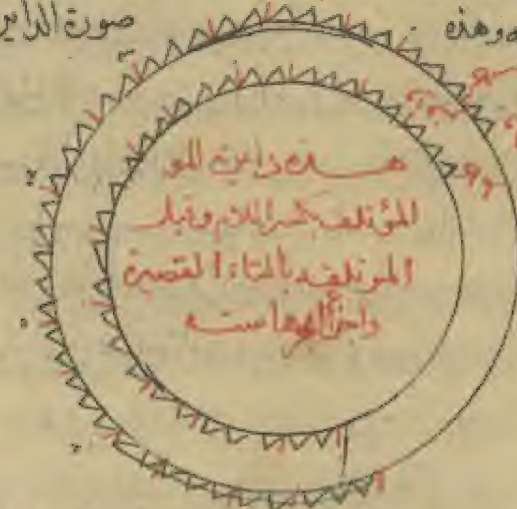 وهذه صورة الداير
هذه داىرة المو
المؤتلف بكسر اللام وقيل
المؤتلفه بالتاء القصيرة
واجزا ابحرها سته